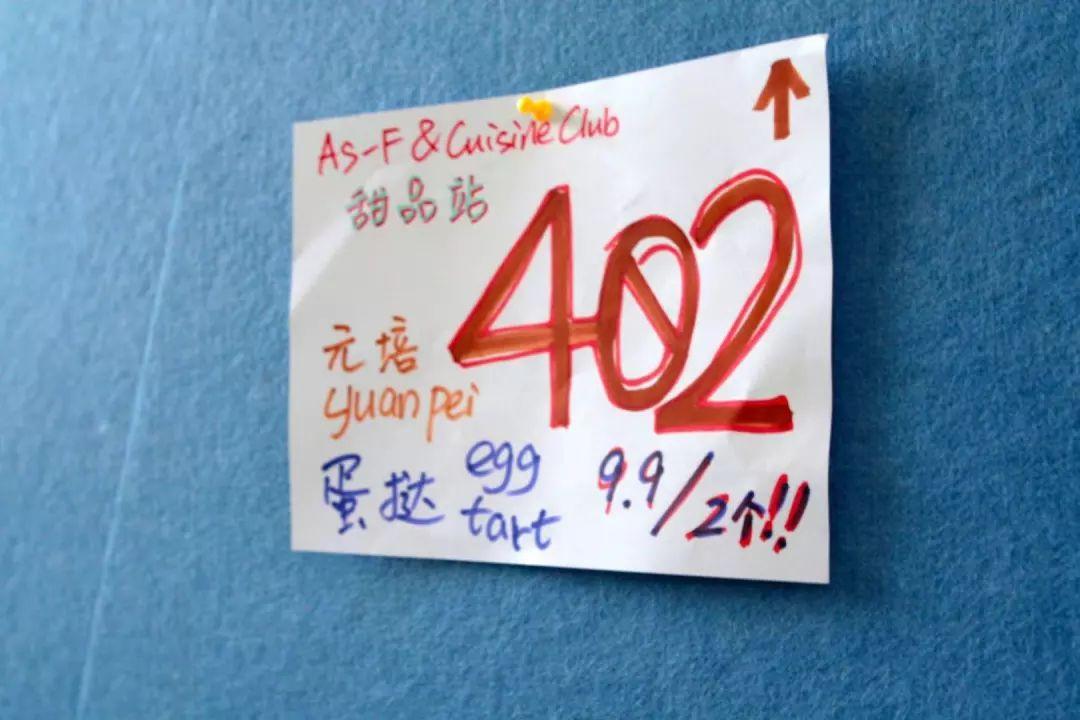 As-F & Cuisine Club
甜品站
402
元培
yuanpei
蛋挞 egg tart 9.9/2个!!